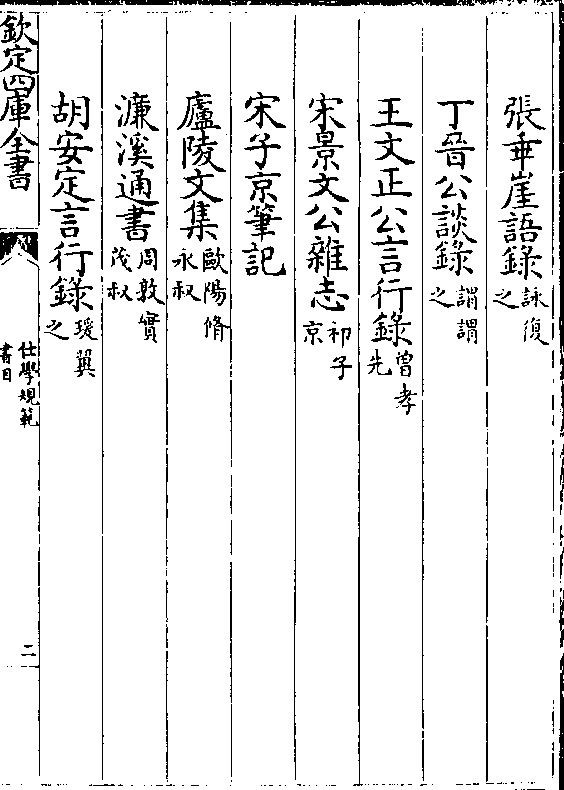 張乖崖語錄詠復之
丁晉公談錄謂謂之
王文正公言行錄曾孝先
宋景文公雜志祁子京
宋子京筆記
廬陵文集歐陽脩永叔
濂溪通書周敦實茂叔
胡安定言行錄瑗翼之
欽定四庫全書
仕學規範書目
二